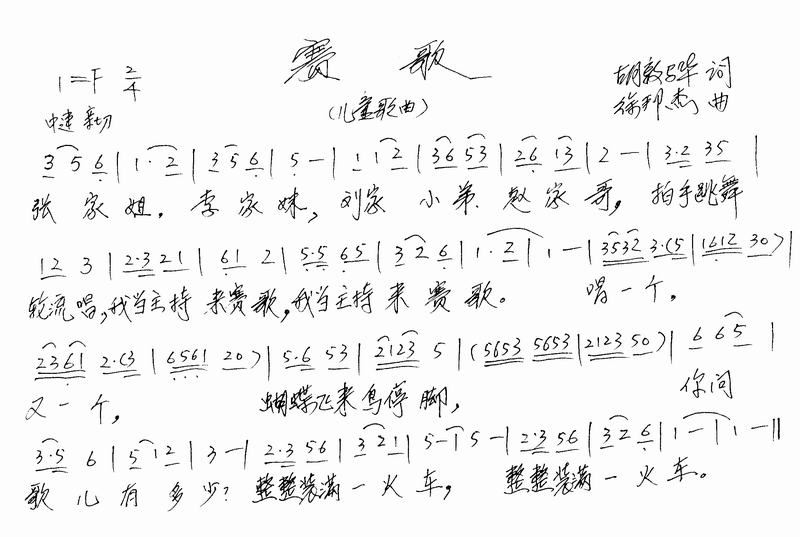 赛 歌
1=F 2/4
(儿童歌曲)
胡敦骅 词
中速 亲切
徐邦杰 曲
3 5 6 | 1· 2 | 3 5 6 | 5 - | 1 1 2 | 36 53 | 26 13 | 2 - | 3·2 35 |
张 家 姐, 李 家 妹, 刘家 小 弟 赵 家 哥, 拍手跳舞
12 3 | 2·3 21 | 61 2 | 5·5 65 | 3 2 6 | 1· 2 | 1 - | 3532 3·(5 | 1612 30) |
轮流唱,我当主持 来赛歌,我当主持 来 赛 歌。 唱一个,
2361 2·(3 | 6561 20) | 5·6 53 | 2123 5 | (5653 5653 | 2123 50) | 6 6 5 |
又 一 个, 蝴蝶飞来鸟停 脚, 你问
3·5 6 | 5 12 | 3 - | 2·3 56 | 3 2 1 | 5 - | 5 - | 2·3 56 | 3 2 6 | 1 - | 1 - ||
歌 儿 有 多 少? 整整装满 一 火 车, 整整装满 一 火 车。